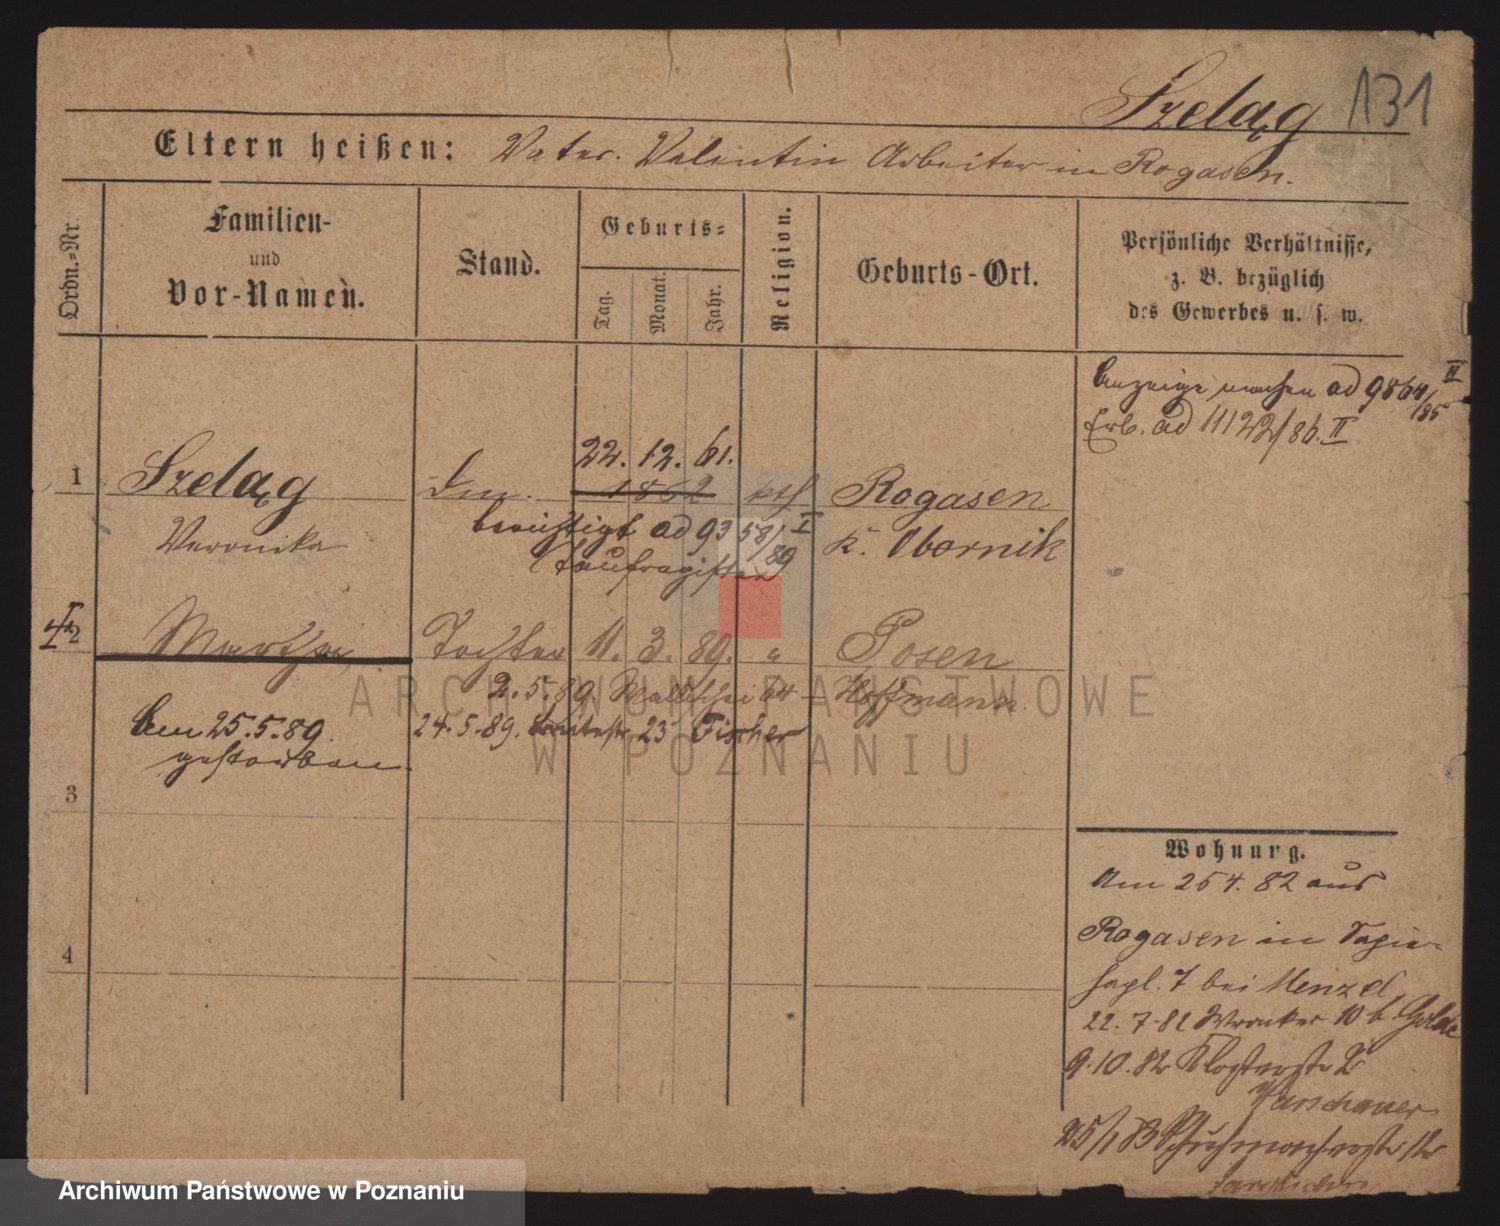 Szeląg 131
Eltern heißen: Vater. Valentin Arbeiter in Rogasen.
Ordn.-Nr.
Familien-
und
Vor-Namen.
Stand.
Geburts-
Tag.
Monat.
Jahr.
Religion.
Geburts-Ort.
Persönliche Verhältnisse,
z. B. bezüglich
des Gewerbes u. s. w.
Anzeige machen ad 9864/85 II
Erl. ad 11122/86. II
22. 12. 61.
1 Szeląg 1862 kth Rogasen
Veronika
berichtigt ad 9358/89 I
Taufregister
K. Obornik
2 Martha Tochter 11. 3. 89. " Posen
2. 5. 89. Wallischei Hoffmann
Am 25.5.89.
gestorben.
24.5.89. Breitestr. 23 Fischer
3
4
Wohnung.
Am 25 4. 82 aus
Rogasen in Sapie-
hapl. 7 bei Menzel
22. 7. 82 Wronker 10 b.
9. 10. 82 Klosterstr 2
Warschauer
25/1 83 Schuhmacherstr 12
ARCHIWUM PAŃSTWOWE
W POZNANIU
Archiwum Państwowe w Poznaniu